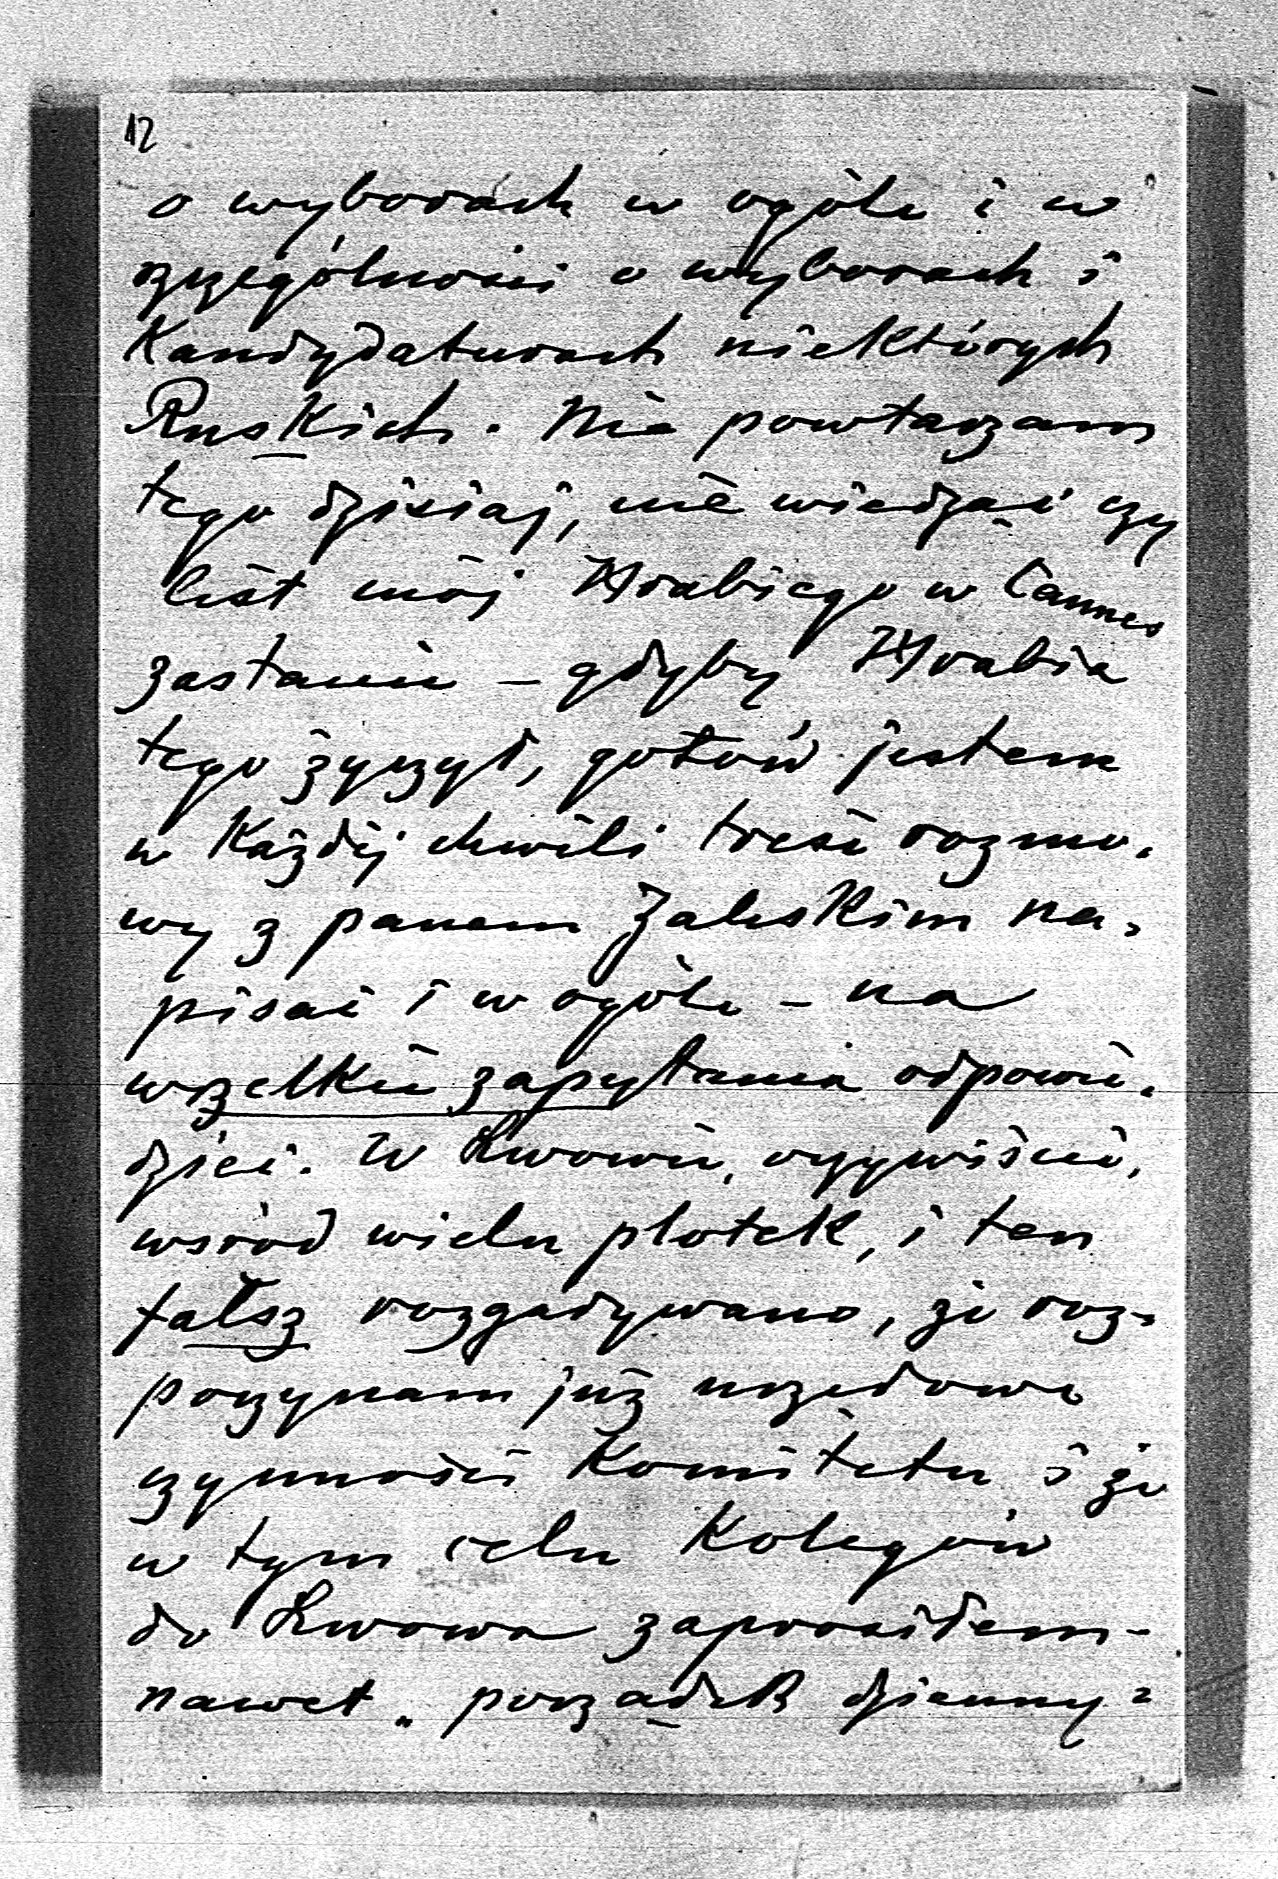 12
o wyborach w ogóle i w
szczególności o wyborach i
Kandydaturach niektórych
Ruskich. Nie powtarzam
tego dzisiaj, nie wiedząc czy
list mój Hrabiego w Cannes
zastanie – gdyby Hrabia
tego życzył, gotów jestem
w Każdéj chwili treść rozmo-
wy z panem Zaleskim na-
pisać i w ogóle – na
wszelkie zapytania odpowie-
dzieć. W Lwowie, oczywiście,
wśród wielu plotek, i ten
fałsz rozgadywano, że roz-
poczynam już urzędowe
czynności Komitetu i że
w tym celu Kolegów
do Lwowa zaprosiłem –
nawet „porządek dzienny"